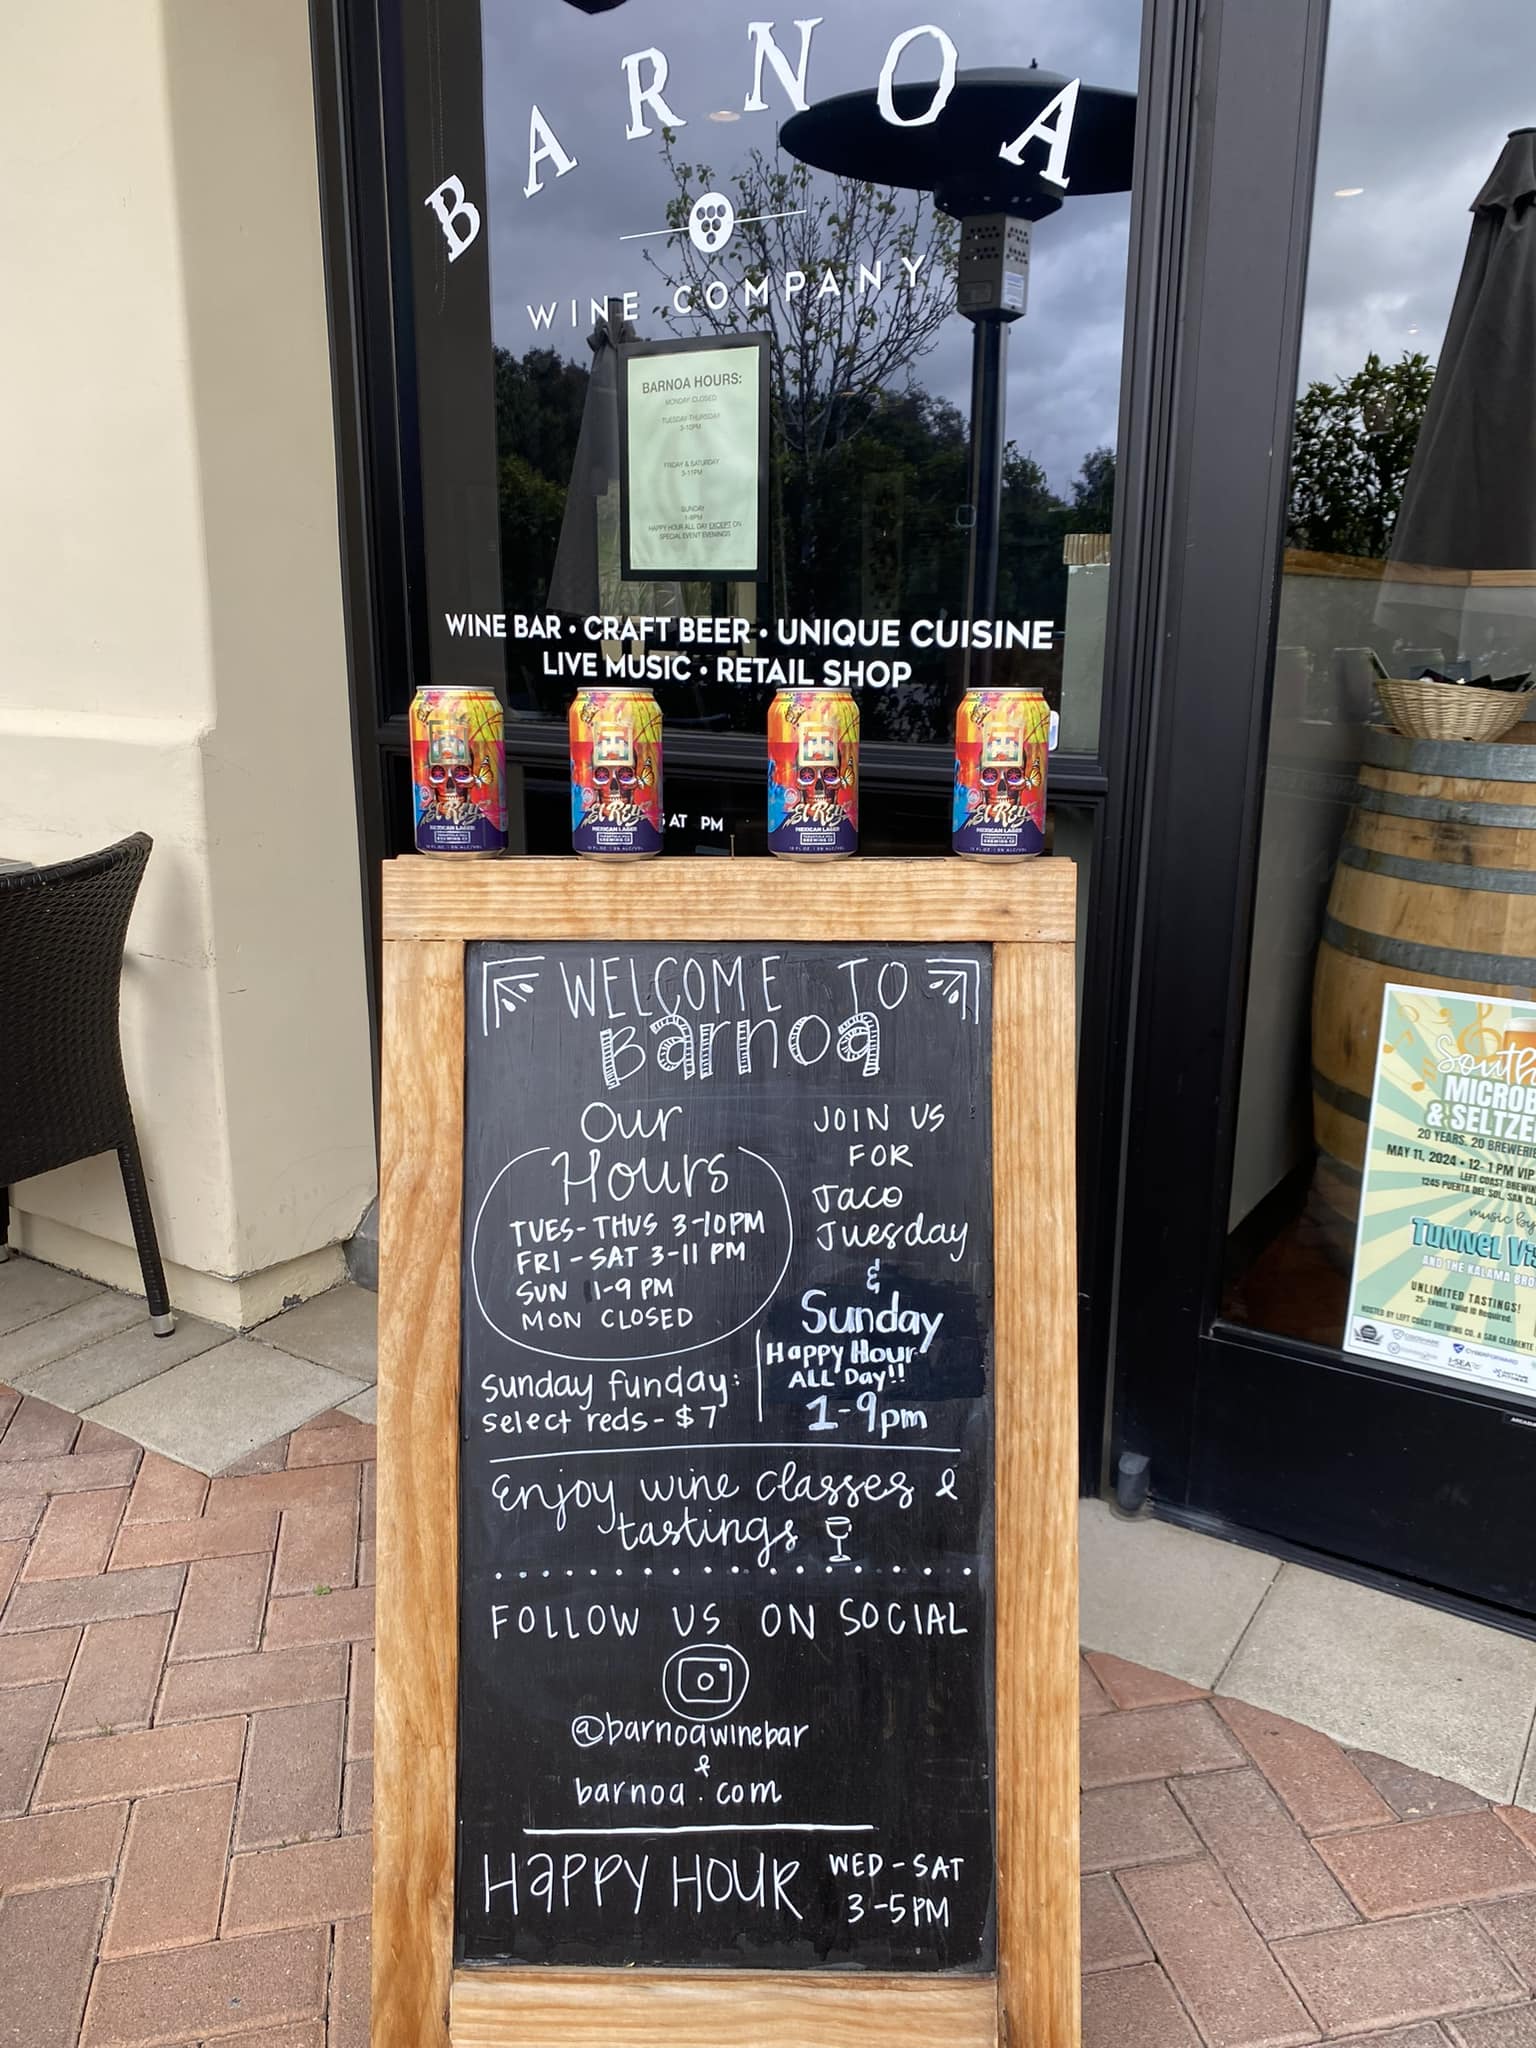 BARNOA
WINE COMPANY
BARNOA HOURS:
MONDAY CLOSED
TUESDAY-THURSDAY
3-10PM
FRIDAY & SATURDAY
3-11PM
SUNDAY
1-9PM
HAPPY HOUR ALL DAY EXCEPT ON
SPECIAL EVENT EVENINGS
WINE BAR • CRAFT BEER • UNIQUE CUISINE
LIVE MUSIC • RETAIL SHOP
El Rey
MEXICAN LAGER
BREWING CO
El Rey
MEXICAN LAGER
BREWING CO
El Rey
MEXICAN LAGER
BREWING CO
El Rey
MEXICAN LAGER
BREWING CO
AT PM
WELCOME TO
Barnoa
Our
Hours
TUES-THUS 3-10PM
FRI-SAT 3-11 PM
SUN 1-9 PM
MON CLOSED
JOIN US
FOR
Taco
Tuesday
&
Sunday
Happy Hour
ALL Day!!
1-9pm
sunday funday:
select reds-$7
Enjoy wine classes &
tastings
FOLLOW US ON SOCIAL
@barnoawinebar
&
barnoa.com
HAPPY HOUR
WED-SAT
3-5PM
South
& SELTZE
20 YEARS. 20 BREWERIE
MAY 11, 2024 • 12-1 PM VIP
LEFT COAST BREWIN
1245 PUERTA DEL SOL, SAN CL
music by
TUNNEL Vi
AND THE KALAMA BRO
UNLIMITED TASTINGS!
Event. Valid ID Required.
HOSTED BY LEFT COAST BREWING CO. & SAN CLEMENTE